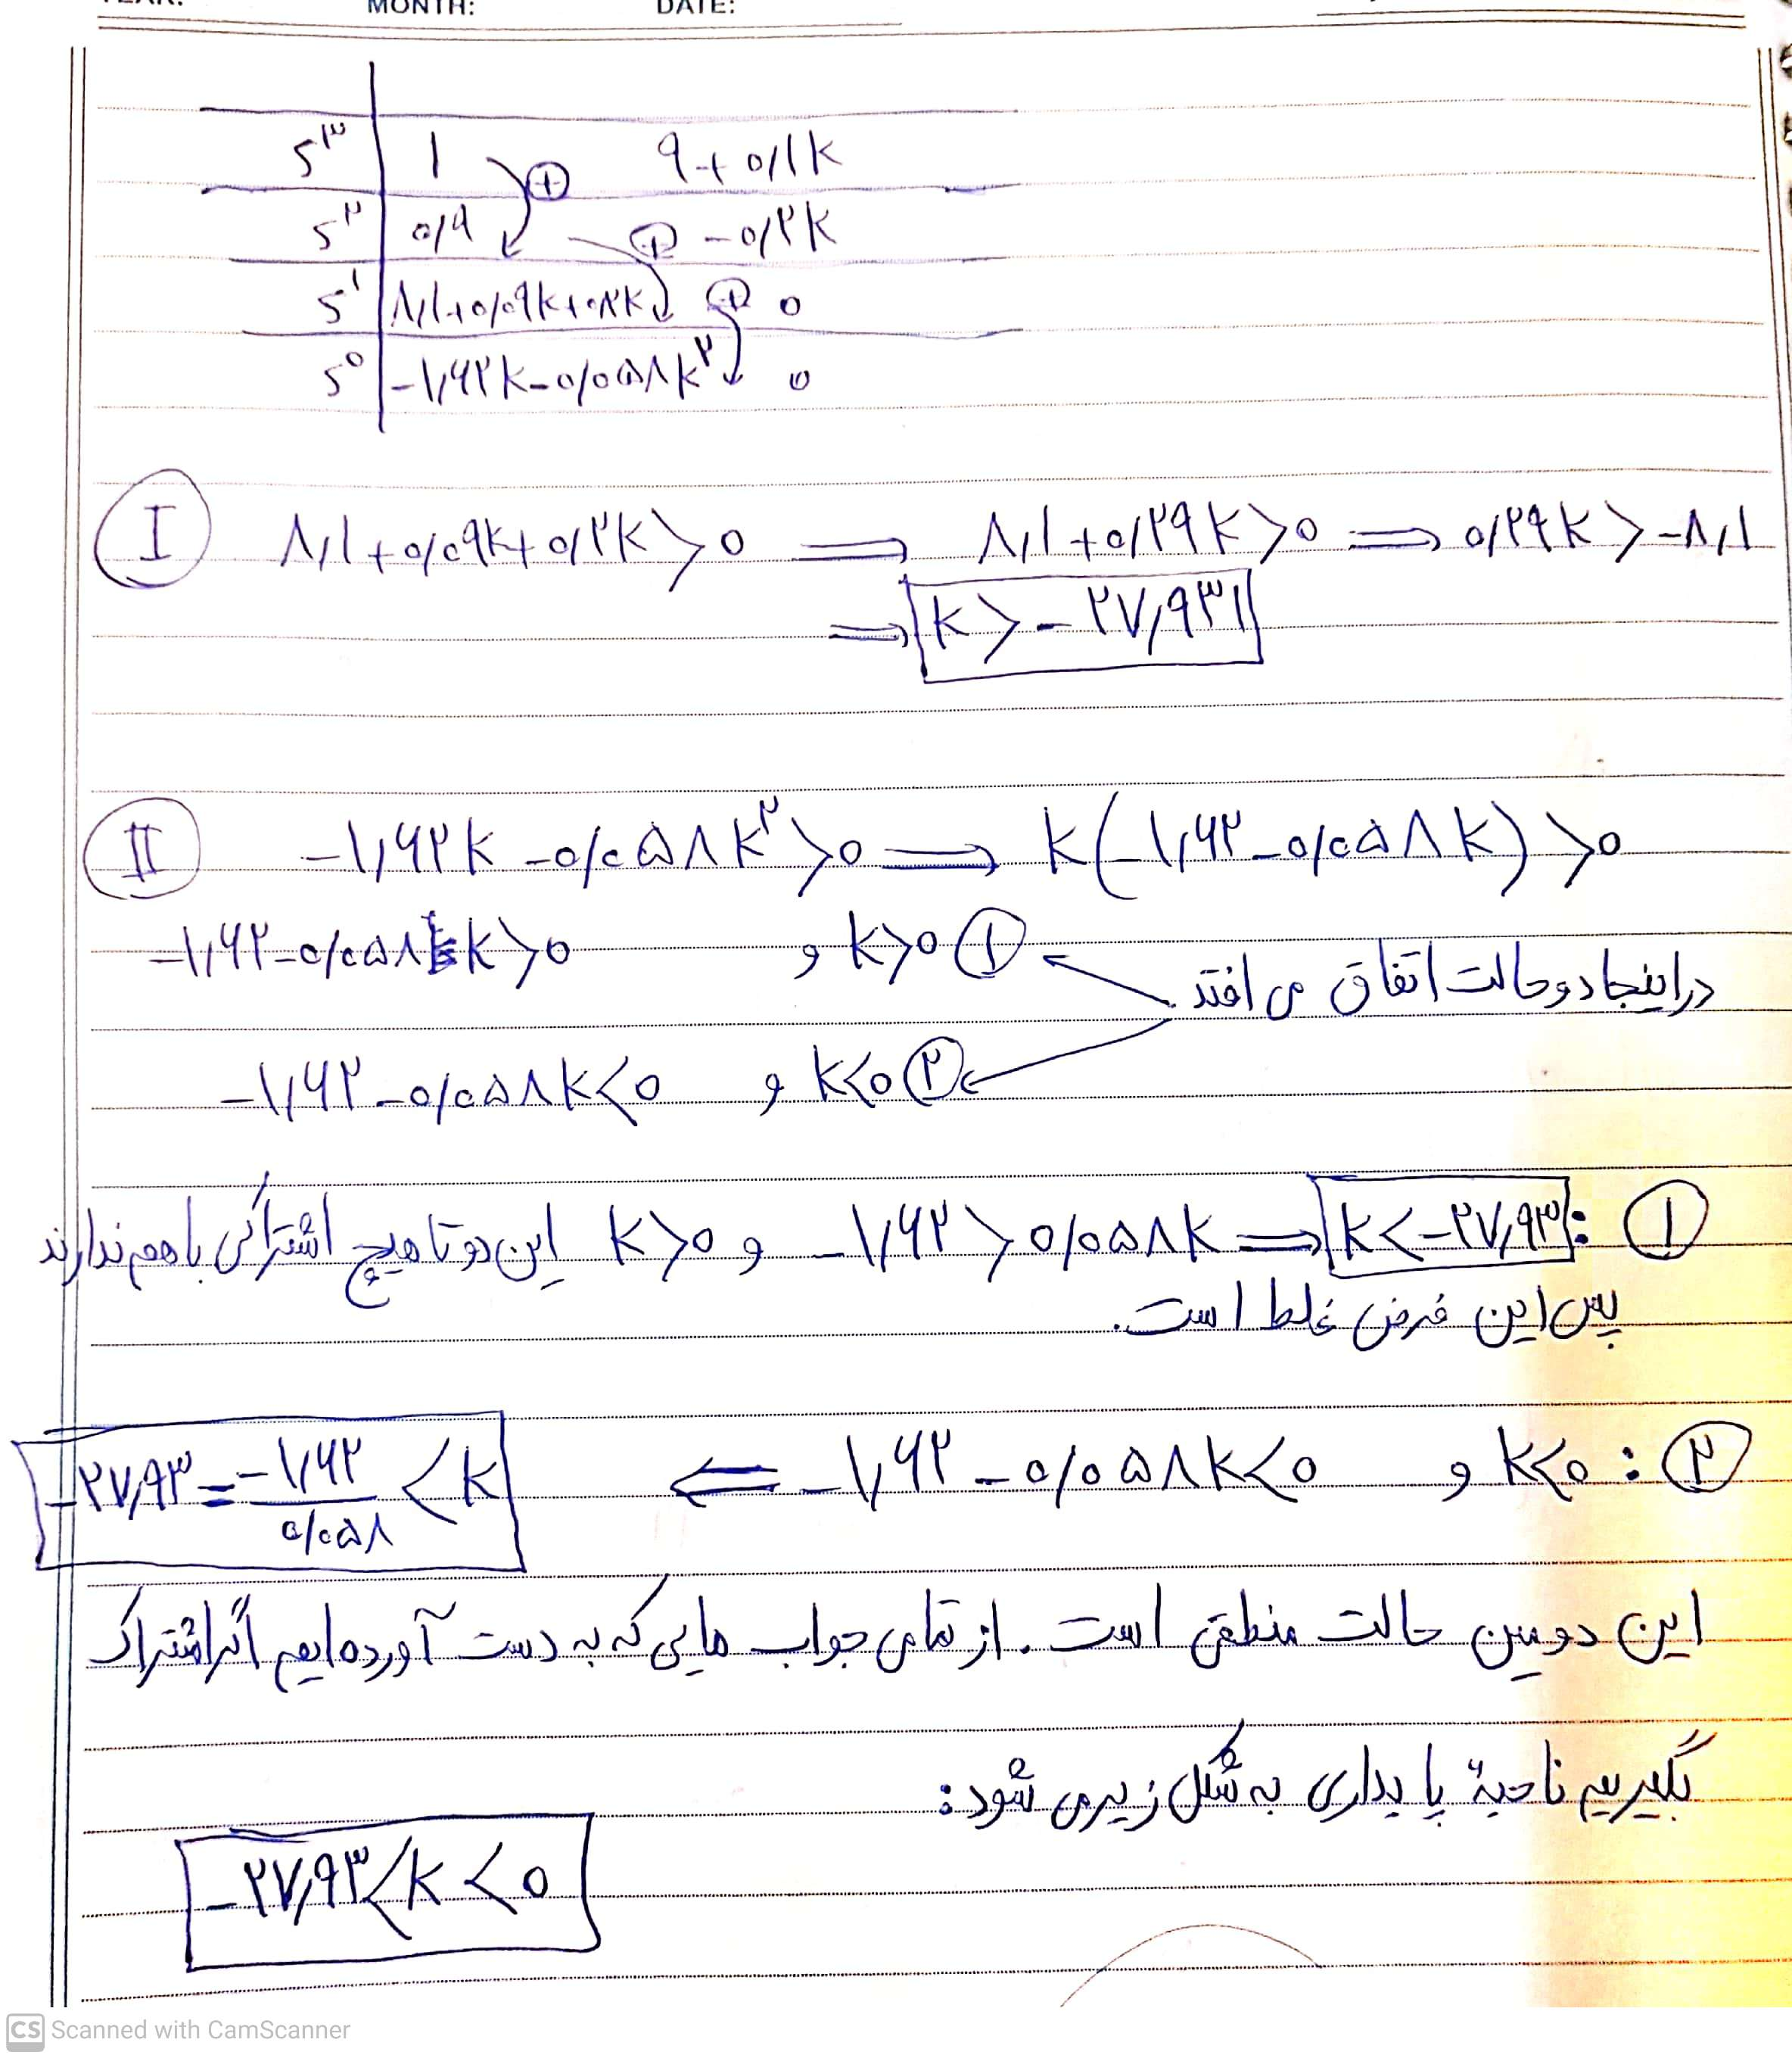 MONTH: DATE:
s³ | ۱ ⊕ ۹+۰/۱k
s² | ۰/۹ ⊕ -۰/۲k
s¹ | ۸/۱+۰/۰۹k+۰/۲k ⊕ ۰
s⁰ | -۱/۶۲k-۰/۰۵۸k² ۰
I ۸/۱+۰/۰۹k+۰/۲k>۰ ⇒ ۸/۱+۰/۲۹k>۰ ⇒ ۰/۲۹k>-۸/۱
⇒ k>-۲۷/۹۳۱
II -۱/۶۲k-۰/۰۵۸k²>۰ ⇒ k(-۱/۶۲-۰/۰۵۸k)>۰
-۱/۶۲-۰/۰۵۸k>۰ و k>۰ ①
در اینجا دو حالت اتفاق می افتند
-۱/۶۲-۰/۰۵۸k<۰ و k<۰ ②
① : k<-۲۷/۹۳ ⇐ -۱/۶۲>۰/۰۵۸k و k>۰ این دو تا هیچ اشتراکی با هم ندارند
پس این فرض غلط است.
② : k<۰ و -۱/۶۲-۰/۰۵۸k<۰ ⇐ -۲۷/۹۳=-۱/۶۲/۰/۰۵۸<k
این دومین حالت منطقی است. از تمامی جواب هایی که به دست آورده ایم اگر اشتراک
بگیریم ناحیهٔ پایداری به شکل زیر می شود:
-۲۷/۹۳<k<۰
CS Scanned with CamScanner